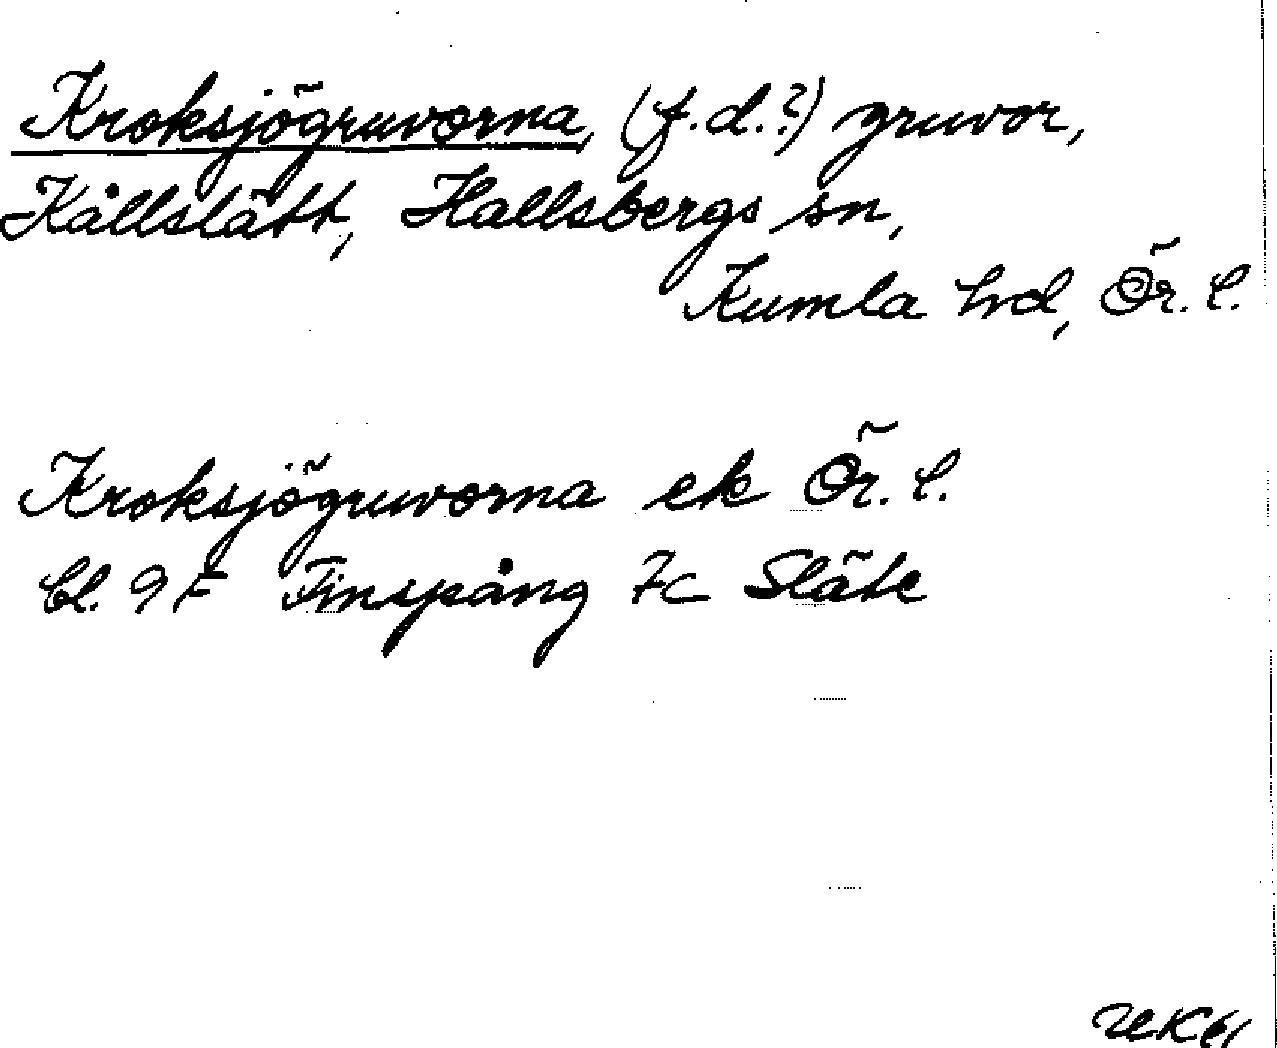 Kroksjögruvorna, (f.d.?) gruvor,
Kållslätt, Hallsbergs sn,
Kumla hd, Ör. l.
Kroksjögruvorna ek Ör. l.
bl. 9F Finspång 7c Släte
UK61